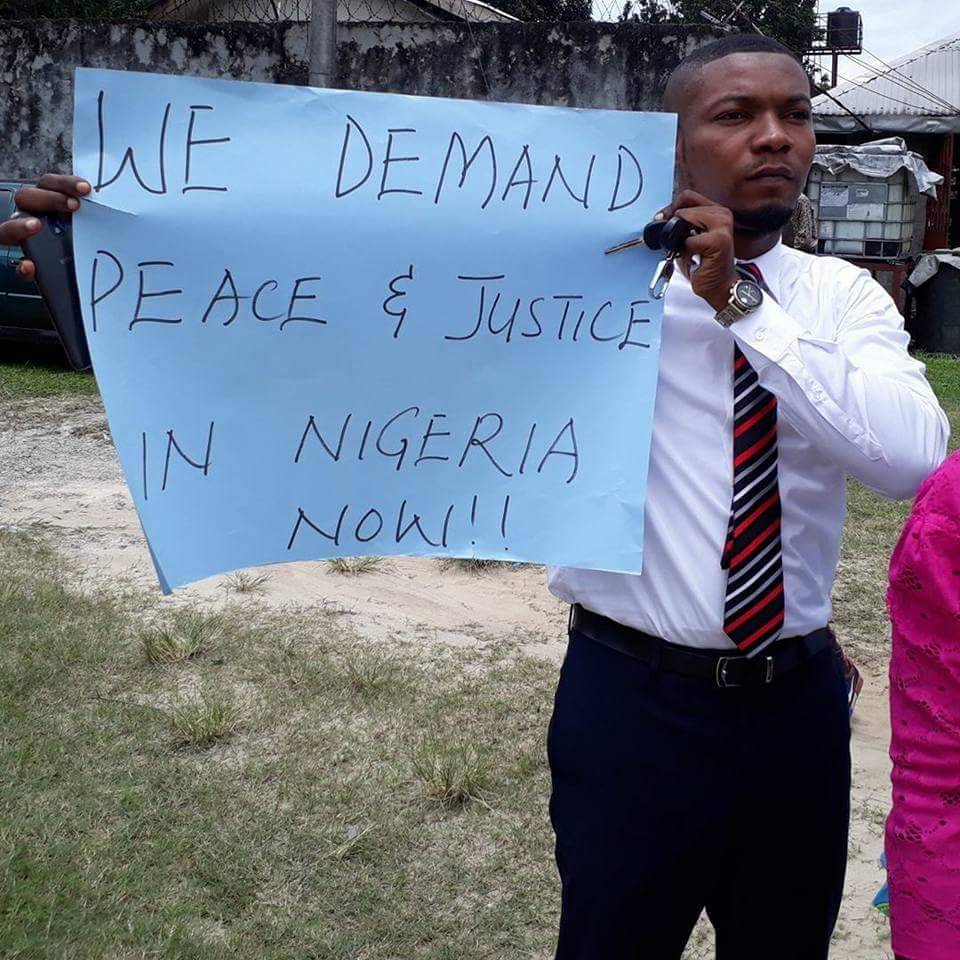 WE DEMAND
PEACE & JUSTICE
IN NIGERIA
NOW!!